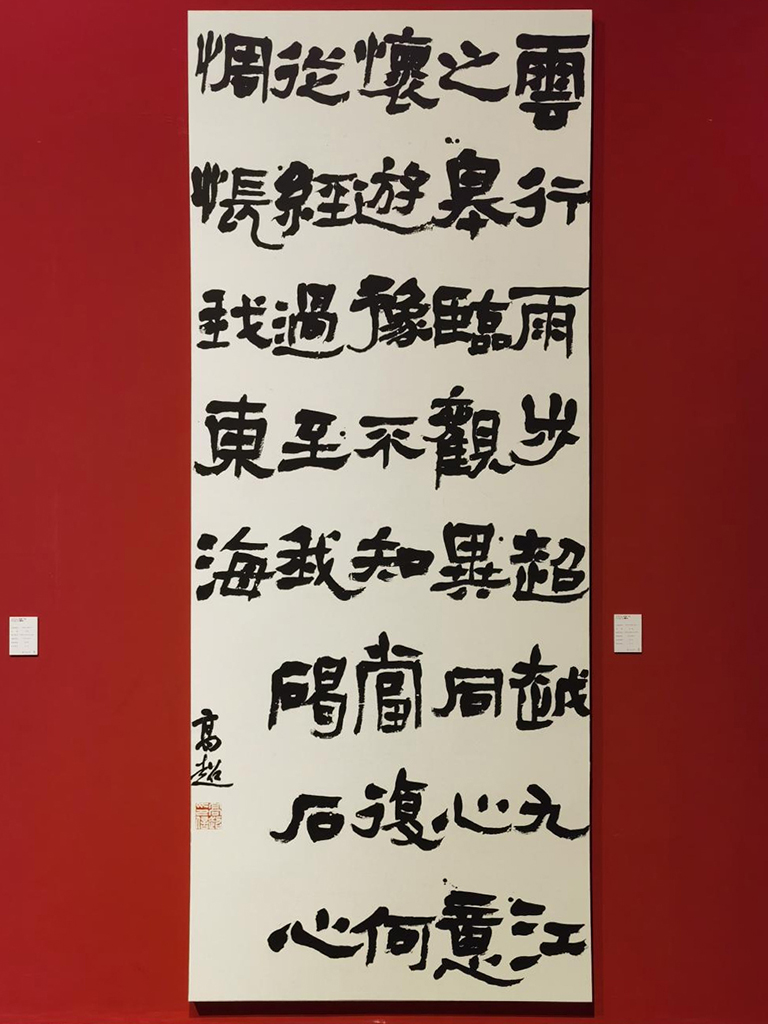 雲行雨步超越九江
之皋臨觀異同心意
懷遊豫不知當復何
從經過至我碣石心
惆悵我東海
高超